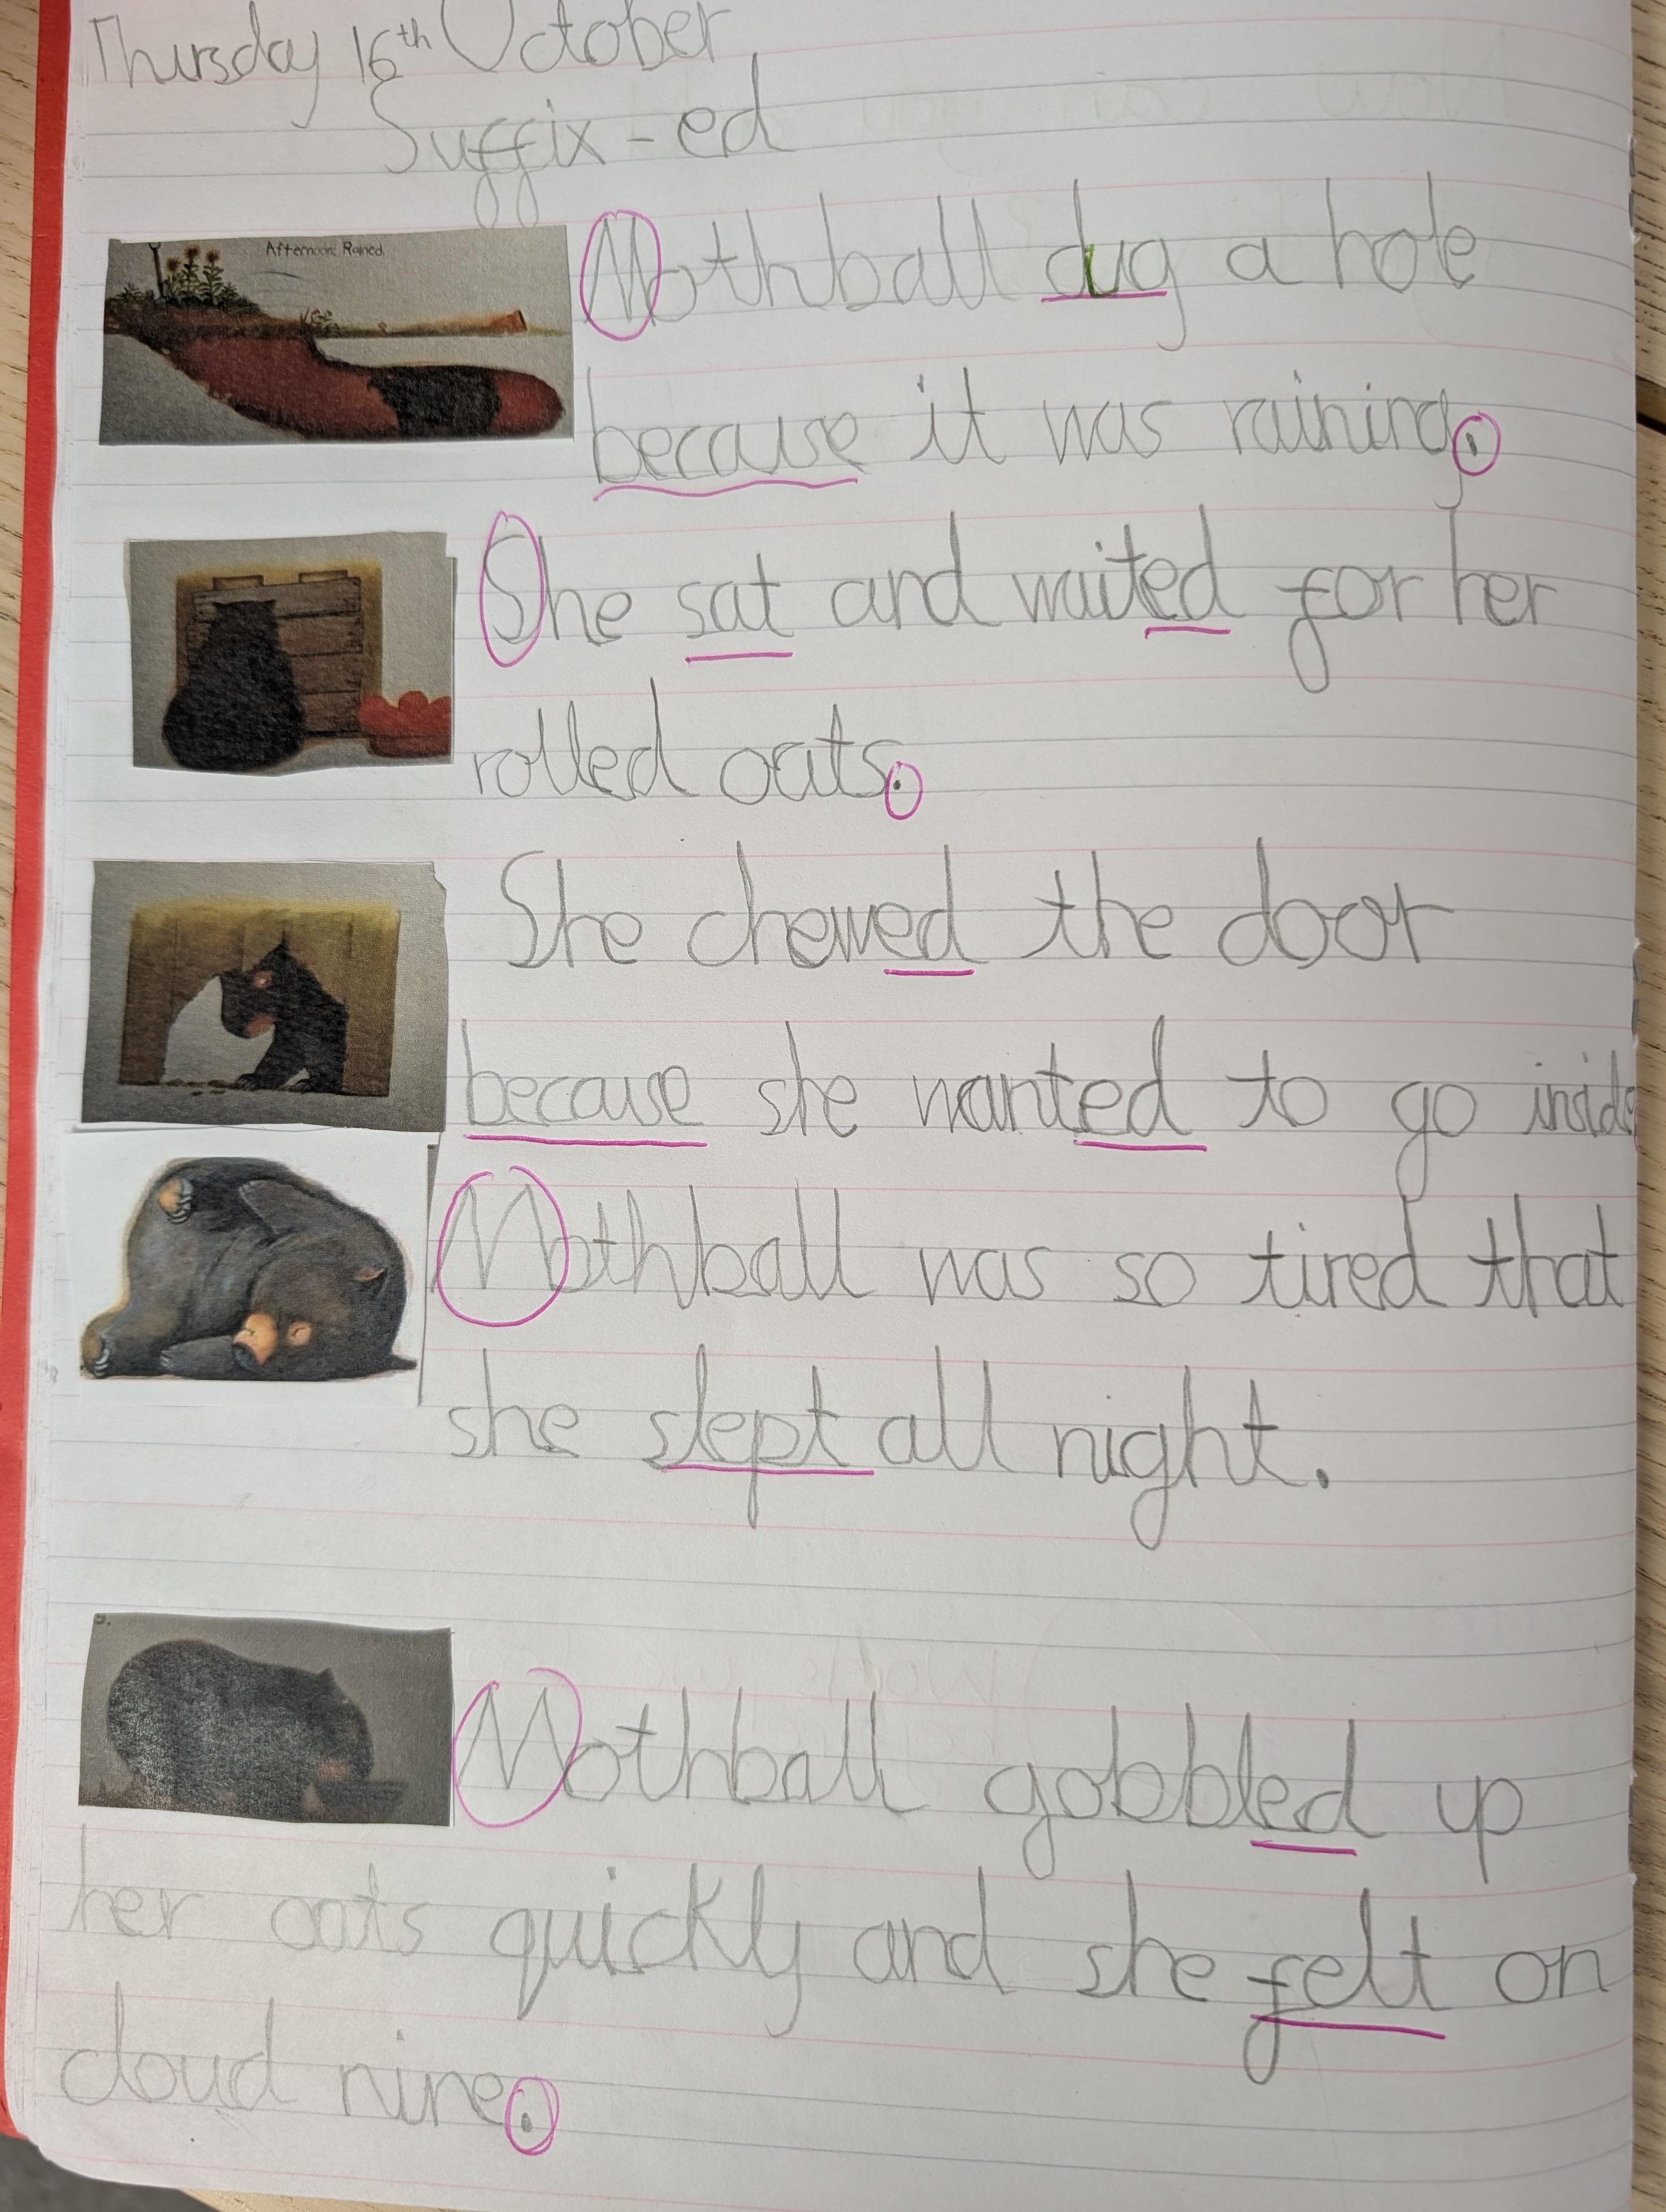 Thursday 16th October
Suffix - ed
Afternoon: Rained.
Mothball dug a hole
because it was raining.
She sat and waited for her
rolled oats.
She chewed the door
because she wanted to go inside
Mothball was so tired that
she slept all night.
Mothball gobbled up
her oats quickly and she felt on
cloud nine.